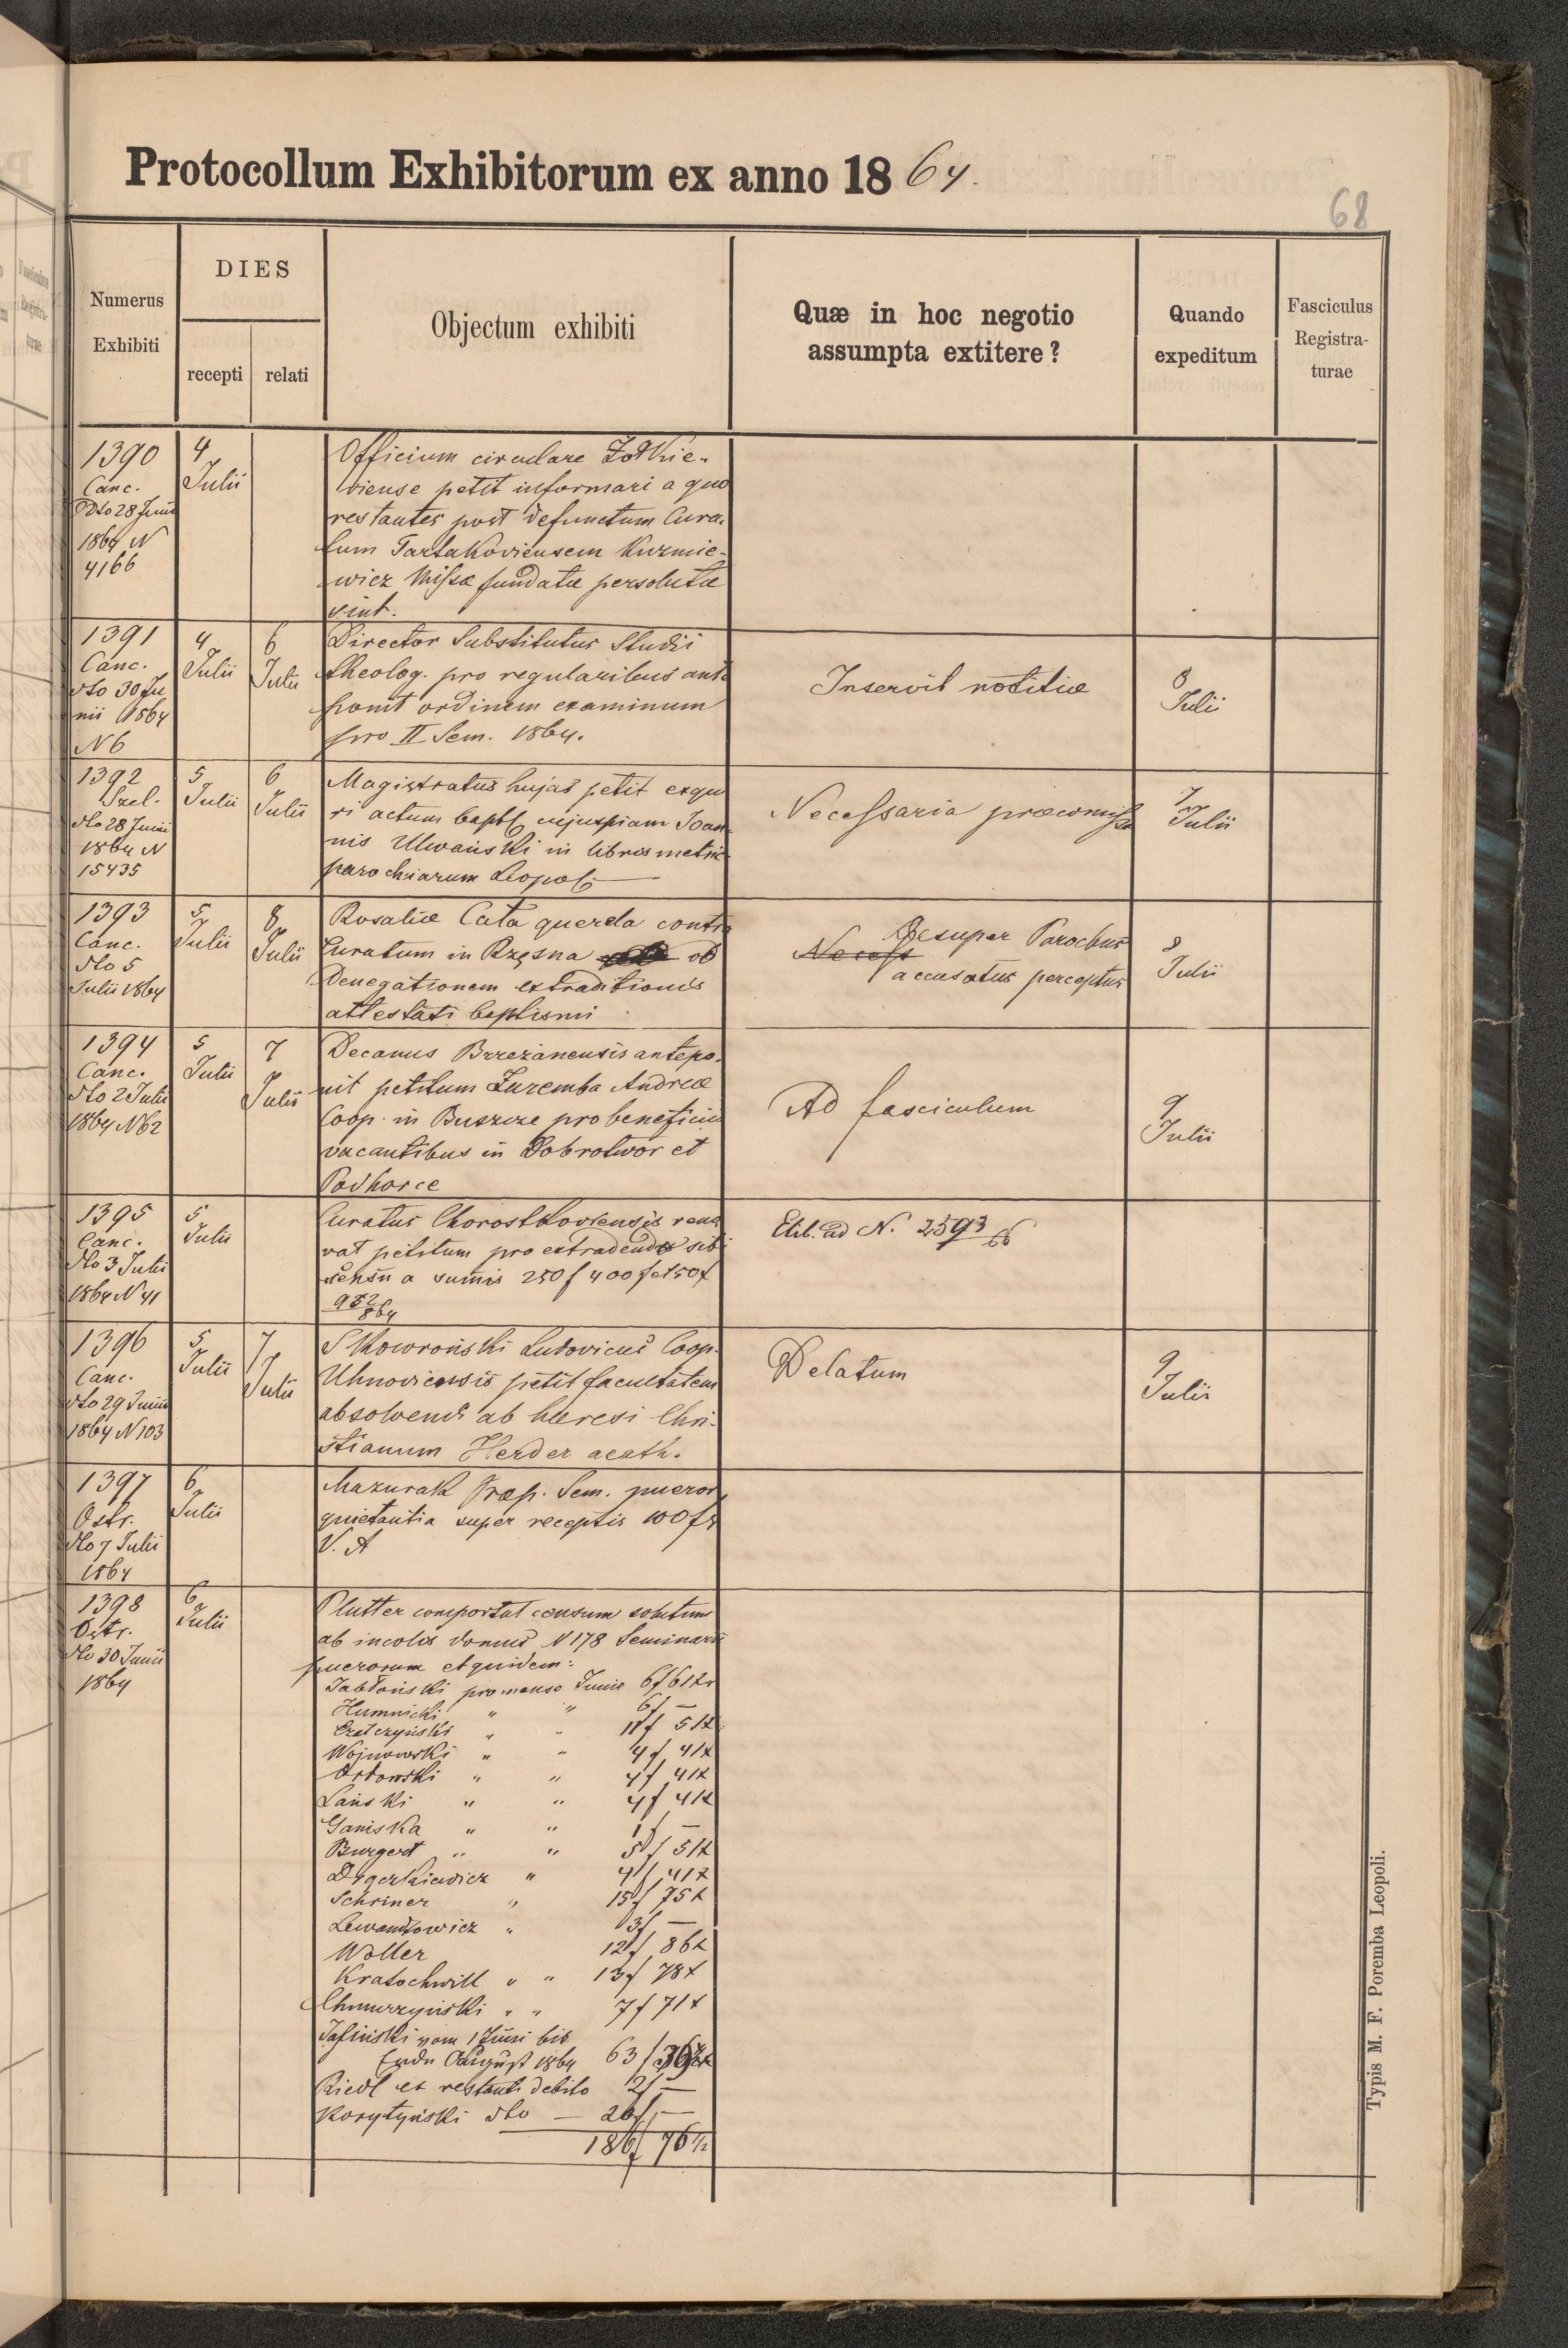 Protocollum Exhibitorum ex anno 1864.
68
Numerus Exhibiti
DIES
recepti relati
Objectum exhibiti
Quæ in hoc negotio
assumpta extitere?
Quando
expeditum
Fasciculus
Registra-
turae
1390
Canc.
Dto 28 Junii
1864 N
4166
4
Julii
Officium circulare Zołkie-
viense petit informari a quo
restantes post defunctum Cura-
tum Tartakoviensem Kuzmie-
wicz Missæ fundatæ persolutæ
sint.
1391
Canc.
dto 30 Ju
nii 1864
N 6
4
Julii
6
Julii
Director Substitutus Studii
theolog. pro regularibus ante
ponit ordinem examinum
pro II Sem. 1864.
Inservit notitiæ
8
Julii
1392
Szel.
dto 28 Junii
1864 N
15435
5
Julii
6
Julii
Magistratus hujas petit exqui
ri actum bapt. cujuspiam Joan-
nis Ulwański in libris metric
parochiarum Leopol.
Necessaria præcomissa
7
Julii
1393
Canc.
dto 5
Julii 1864
5
Julii
8
Julii
Rosaliæ Cata querela contra
Curatum in Rzęsna ob
Denegationem extraditionis
attestati baptismi
Necess
Desuper Parochus
accusatus perceptus
8
Julii
1394
Canc.
dto 2 Julii
1864 N 62
5
Julii
7
Julii
Decanus Brzezanensis antepo-
nit petitum Zaremba Andreæ
Coop. in Buszcze pro beneficiis
vacantibus in Dobrotwor et
Podhorce
Ad fasciculum
9
Julii
1395
Canc.
dto 3 Julii
1864 N 41
5
Julii
Curatus Chorostkoviensis reno
vat petitum pro extradendo sibi
censu a sumis 250 f 400 f et 50 f
952/864
Exh. ad N. 2593/66
1396
Canc.
dto 29 Junii
1864 N 103
5
Julii
7
Julii
Skowroński Ludovicus Coop.
Uhnoviensis petit facultatem
absolvendi ab hæresi Chri-
stianum Herder acath.
Delatum
9
Julii
1397
Ostr.
dto 7 Julii
1864
6
Julii
Mazurak Præp. Sem. pueror
quietantia super receptis 100 fr
V. A
1398
Ostr.
dto 30 Junii
1864
6
Julii
Plutter comportat censum solutum
ab incolis domus N 178 Seminarii
puerorum et quidem:
Jabłoński pro mense Junio 6 f 61 xr
Humnicki " " 6 f —
" " 11 f 51 x
Wojnowski " " 4 f 41 x
Orłowski " " 4 f 41 x
Lański " " 4 f 41 x
Ganiska " " 1 f —
Burgert " " 5 f 51 x
" 4 f 41 x
Schriner " 15 f 75 x
Lewandowicz " 3 f —
Woller 12 f 86 x
Kratochwill " " 13 f 78 x
Chmurzyński " " 7 f 71 x
Jasiński vom 1 Juni bis
Ende August 1864 63 f
Riedl ex restanti debito 2 f —
Korytyński dto — 20 f —
186 f 76 ½
Typis M. F. Poremba Leopoli.